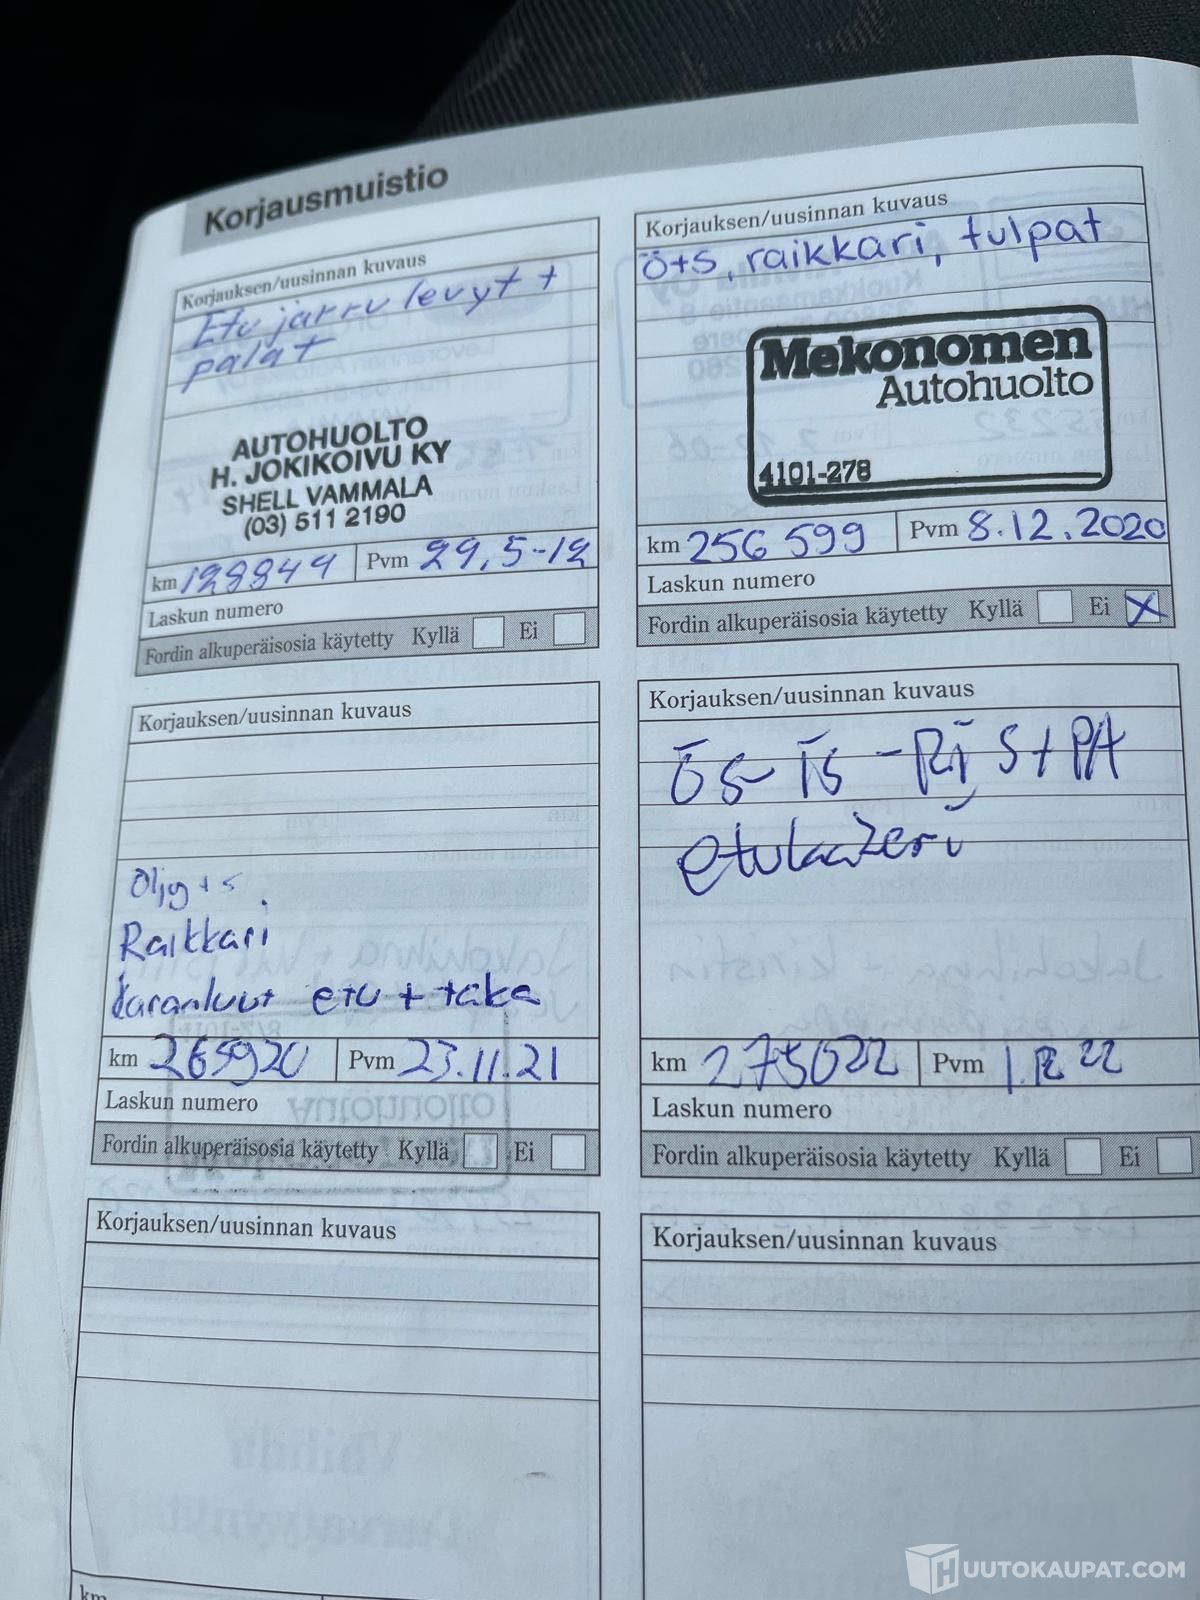 Korjausmuistio
Korjauksen/uusinnan kuvaus
Etu jarru levyt +
palat
AUTOHUOLTO
H. JOKIKOIVU KY
SHELL VAMMALA
(03) 511 2190
km Pvm 29.5-12
Laskun numero
Fordin alkuperäisosia käytetty Kyllä Ei
Korjauksen/uusinnan kuvaus
Ö+S, raikkari, tulpat
Mekonomen
Autohuolto
4101-278
km 256 599 Pvm 8.12.2020
Laskun numero
Fordin alkuperäisosia käytetty Kyllä Ei X
Korjauksen/uusinnan kuvaus
Öljy + s
Raikkari
etu + taka
km 265920 Pvm 23.11.21
Laskun numero
Fordin alkuperäisosia käytetty Kyllä Ei
Korjauksen/uusinnan kuvaus
ÖS - IS - RJ S + PA
km 275022 Pvm 1.12 22
Laskun numero
Fordin alkuperäisosia käytetty Kyllä Ei
Korjauksen/uusinnan kuvaus
km
Korjauksen/uusinnan kuvaus
HUUTOKAUPAT.COM